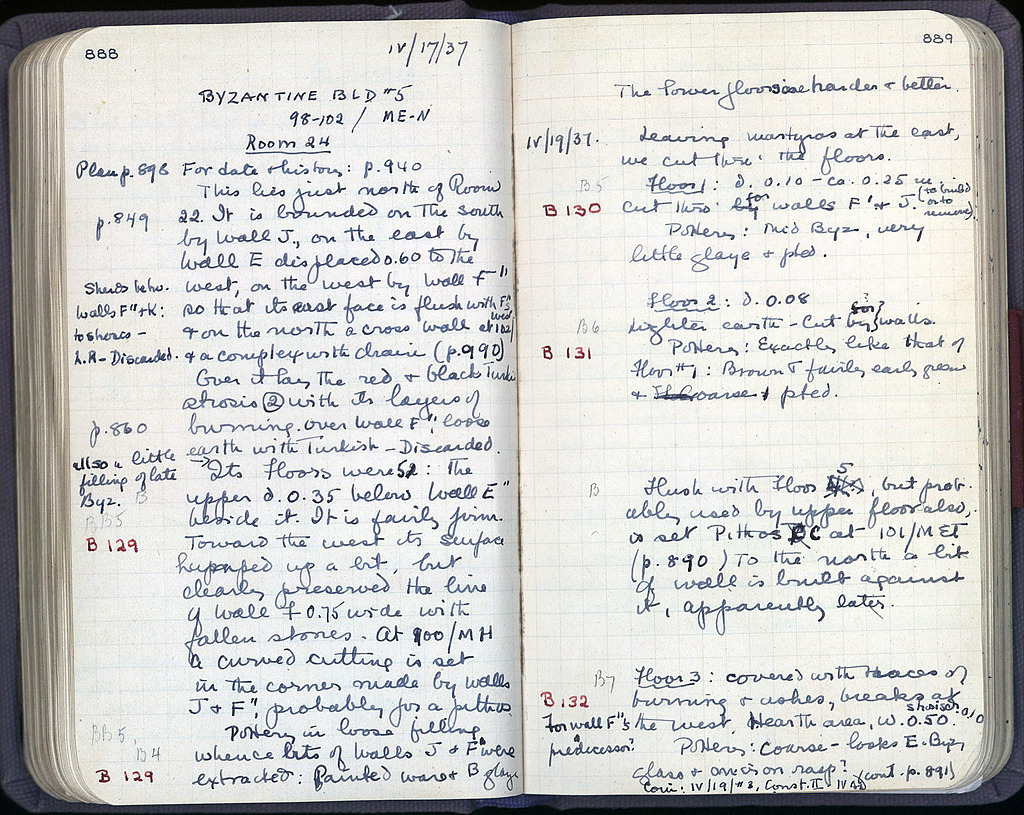 888
IV/17/37
BYZANTINE BLD #5
98-102 / ME-N
Room 24
Plan p. 898 For date & history: p. 940
This lies just north of Room
p. 849 22. It is bounded on the south
by Wall J, on the east by
Wall E displaced 0.60 to the
Sherds betw. west, on the west by Wall F"
Walls F" & K: so that its east face is flush with F"'s
west
to sherds - & on the north a cross wall at 102/
L.R - Discarded. & a complex with drain (p. 990)
Over it lay the red & black Turkish
strosis (2) with its layers of
p. 860 burning. Over Wall F", loose
earth with Turkish - Discarded.
also a little
filling of late
Byz. B
Its floors were 5: The
upper d. 0.35 below Wall E"
BB5 beside it. It is fairly firm.
B 129 Toward the west its surface
humped up a bit, but
clearly preserved the line
of wall 0.75 wide with
fallen stones. At 100/MH
a curved cutting is set
in the corner made by walls
J & F", probably for a pithos.
BB5, Pottery in loose filling
B4 whence bits of walls J & F" were
B 129 extracted: Painted ware & B glaze
889
The lower floors are harder & better.
IV/19/37. Leaving martyras at the east,
we cut thro' the floors.
B5 Floor 1: d. 0.10 - ca. 0.25 m.
B 130 cut thro' by for walls F" & J. (to build
or to
remove).
Pottery: Mid Byz, very
little glaze & pted.
Floor 2: d. 0.08
B6 Lighter earth - Cut by for? walls.
B 131 Pottery: Exactly like that of
Floor #1: Brown T fairly early green
& coarse, pted.
B Flush with Floor 5, but prob-
ably used by upper floor also,
is set Pithos BC at 101/MET
(p. 890) To the north a bit
of wall is built against
it, apparently later.
B7 Floor 3: covered with traces of
B 132 burning & ashes, breaks at
For wall F"'s the west. Hearth area, w. 0.50
predecessor? Pottery: Coarse - looks E. Byz,
glass & incis on rasp?
Coin: IV/19/#3, Const. II IV AD
(cont. p. 891)